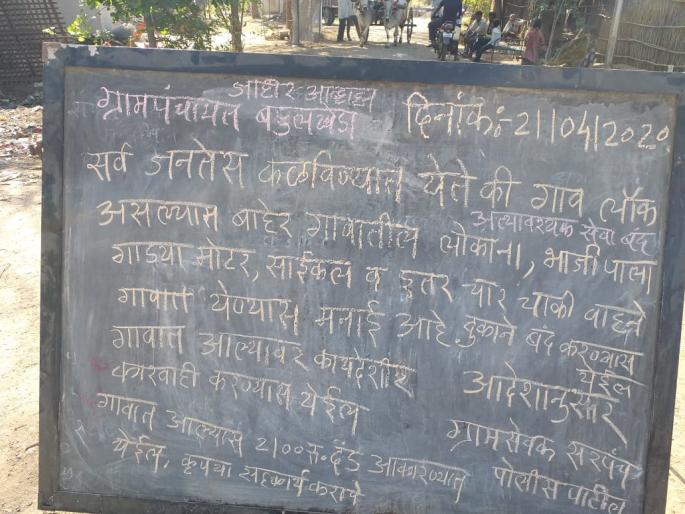 जाहीर आव्हान
ग्रामपंचायत दिनांक:-21/04/2020
सर्व जनतेस कळविण्यात येते की गाव लॉक
अत्यावश्यक सेवा बंद
असल्यान बाहेर गावातील लोकाना, भाजी पाला
गाड्या मोटर, साईकल व इतर चार चाकी वाहने
गावात येण्यास मनाई आहे दुकाने बंद करण्यास
येईल
गावात आल्यावर कायदेशीर आदेशानुसार
कारवाही करण्यास येईल
ग्रामसेवक सरपंच
गावात आल्यास 2100रु. दंड आकारण्यात पोलीस पाटील
येईल. कृपया सहकार्य करावे